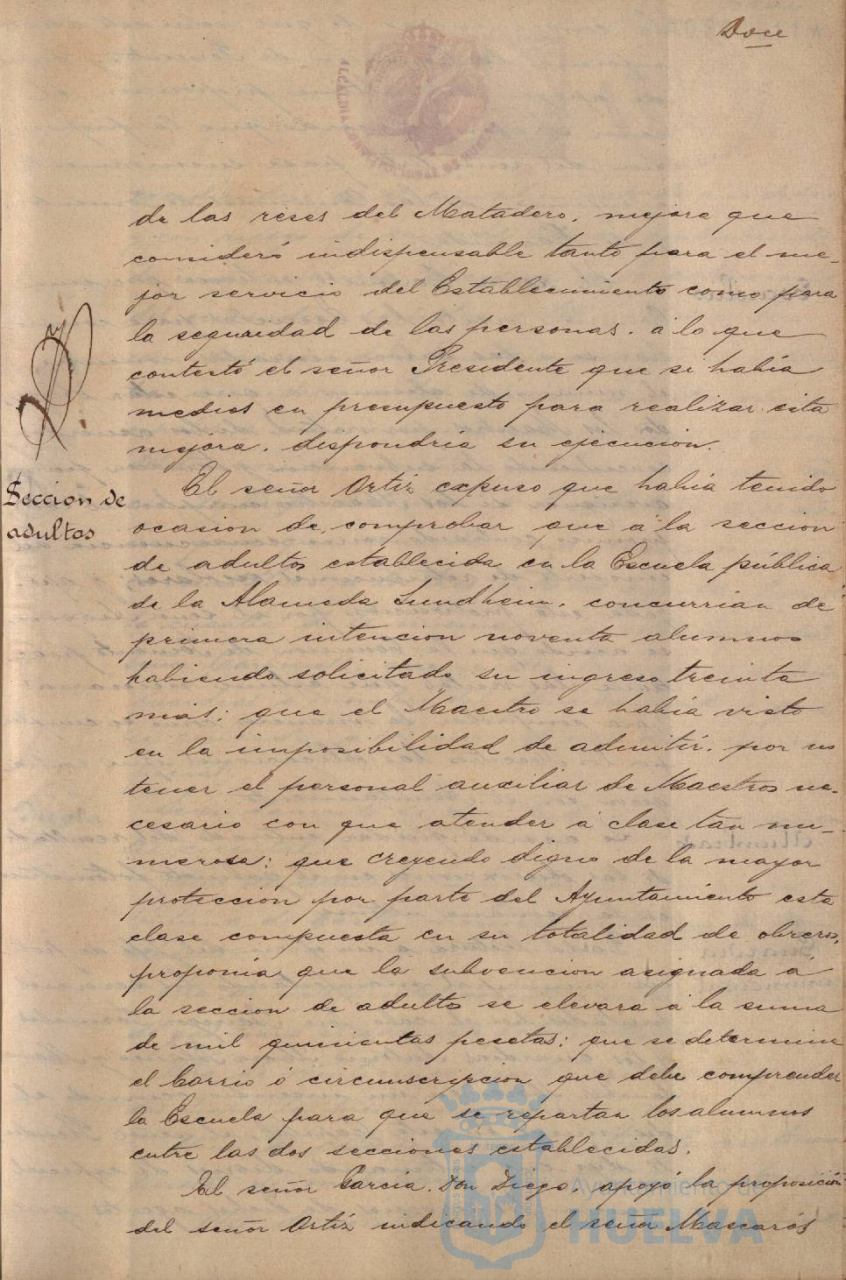 Doce
de las reses del Matadero, mejora que
consideró indispensable tanto para el me-
jor servicio del Establecimiento como para
la seguridad de las personas. á lo que
contestó el señor Presidente que si había
medios en presupuesto para realizar esta
mejora, dispondría su ejecucion.
Seccion de
adultos
El señor Ortiz expuso que había tenido
ocasion de comprobar que á la seccion
de adultos establecida en la Escuela pública
de la Alameda Sundheim, concurrian de
primera intencion noventa alumnos
habiendo solicitado su ingreso treinta
más; que el Maestro se había visto
en la imposibilidad de admitir, por no
tener el personal auxiliar de Maestros ne-
cesario con que atender á clase tan nu-
merosa; que creyendo digno de la mayor
proteccion por parte del Ayuntamiento esta
clase compuesta en su totalidad de obreros,
proponía que la subvencion asignada á
la seccion de adultos se elevara á la suma
de mil quinientas pesetas; que se determine
el barrio ó circunscripcion que debe comprender
la Escuela para que se repartan los alumnos
entre las dos secciones establecidas.
El señor García, Don Diego, apoyó la proposición
del señor Ortiz indicando el señor Mascarós
Ayuntamiento de
HUELVA